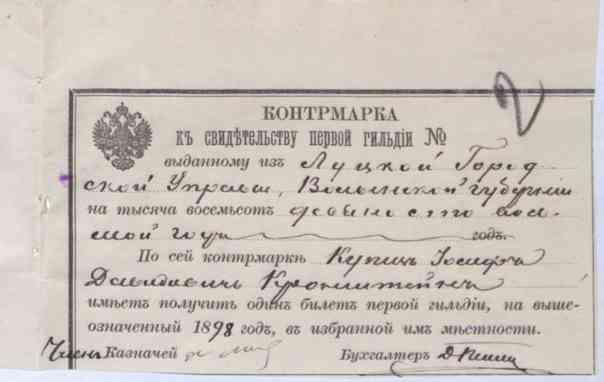 2
КОНТРМАРКА
къ свидѣтельству первой гильдіи №
выданному изъ Луцкой Город
ской Управы, Волынской губерніи
на тысяча восемьсотъ девяносто вось
мой годъ годъ.
По сей контрмаркѣ Купецъ Іосифъ
Давидовичъ Кронштейнъ
имѣетъ получить одинъ билетъ первой гильдіи, на выше-
означенный 1898 годъ, въ избранной им мѣстности.
Членъ Казначей Бухгалтеръ